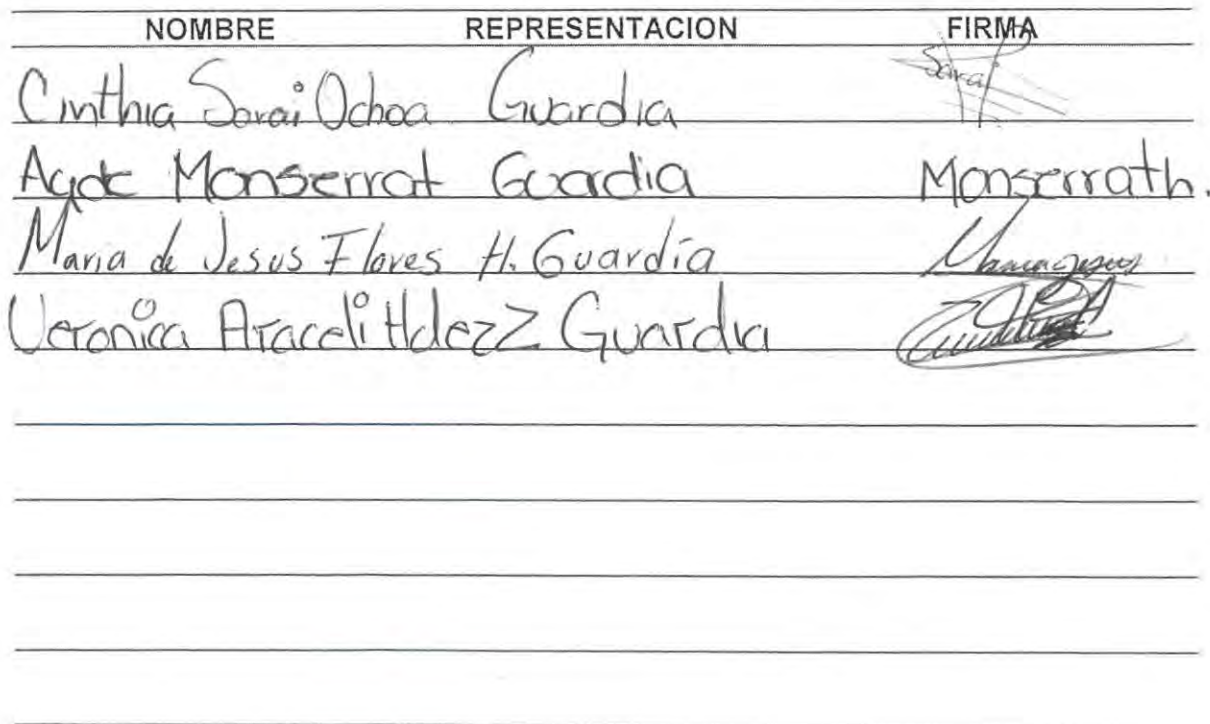 NOMBRE REPRESENTACION FIRMA
Cinthia Sarai Ochoa Guardia Sarai
Monserrat Guardia Monserrath.
Maria de Jesus Flores H. Guardía
Veronica Araceli Hdez Z Guardia